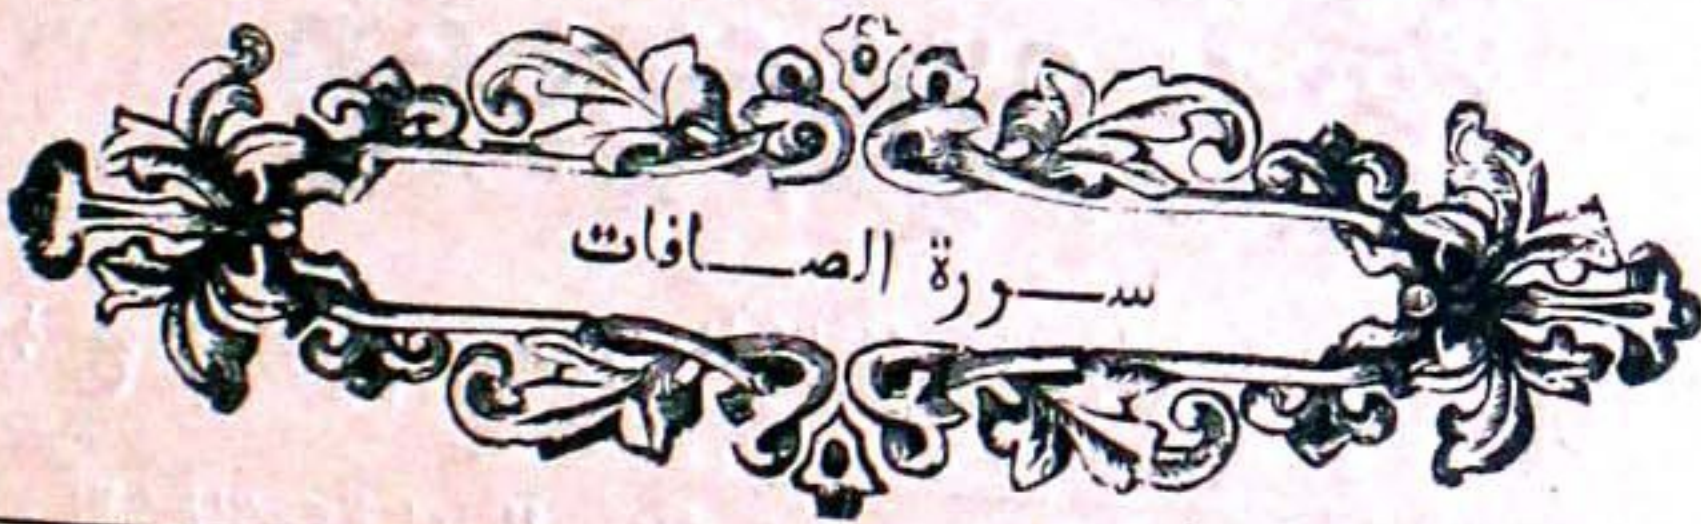 سـورة الصـافات